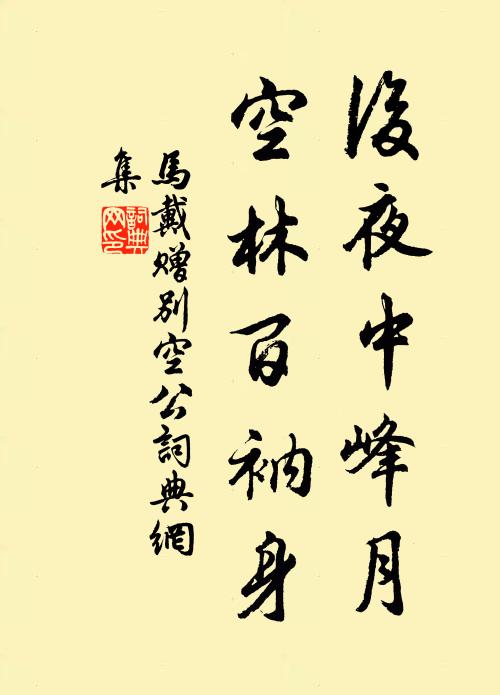 後夜中峰月
空林百衲身
馬戴贈別空公詞典網
集
詞典
网印